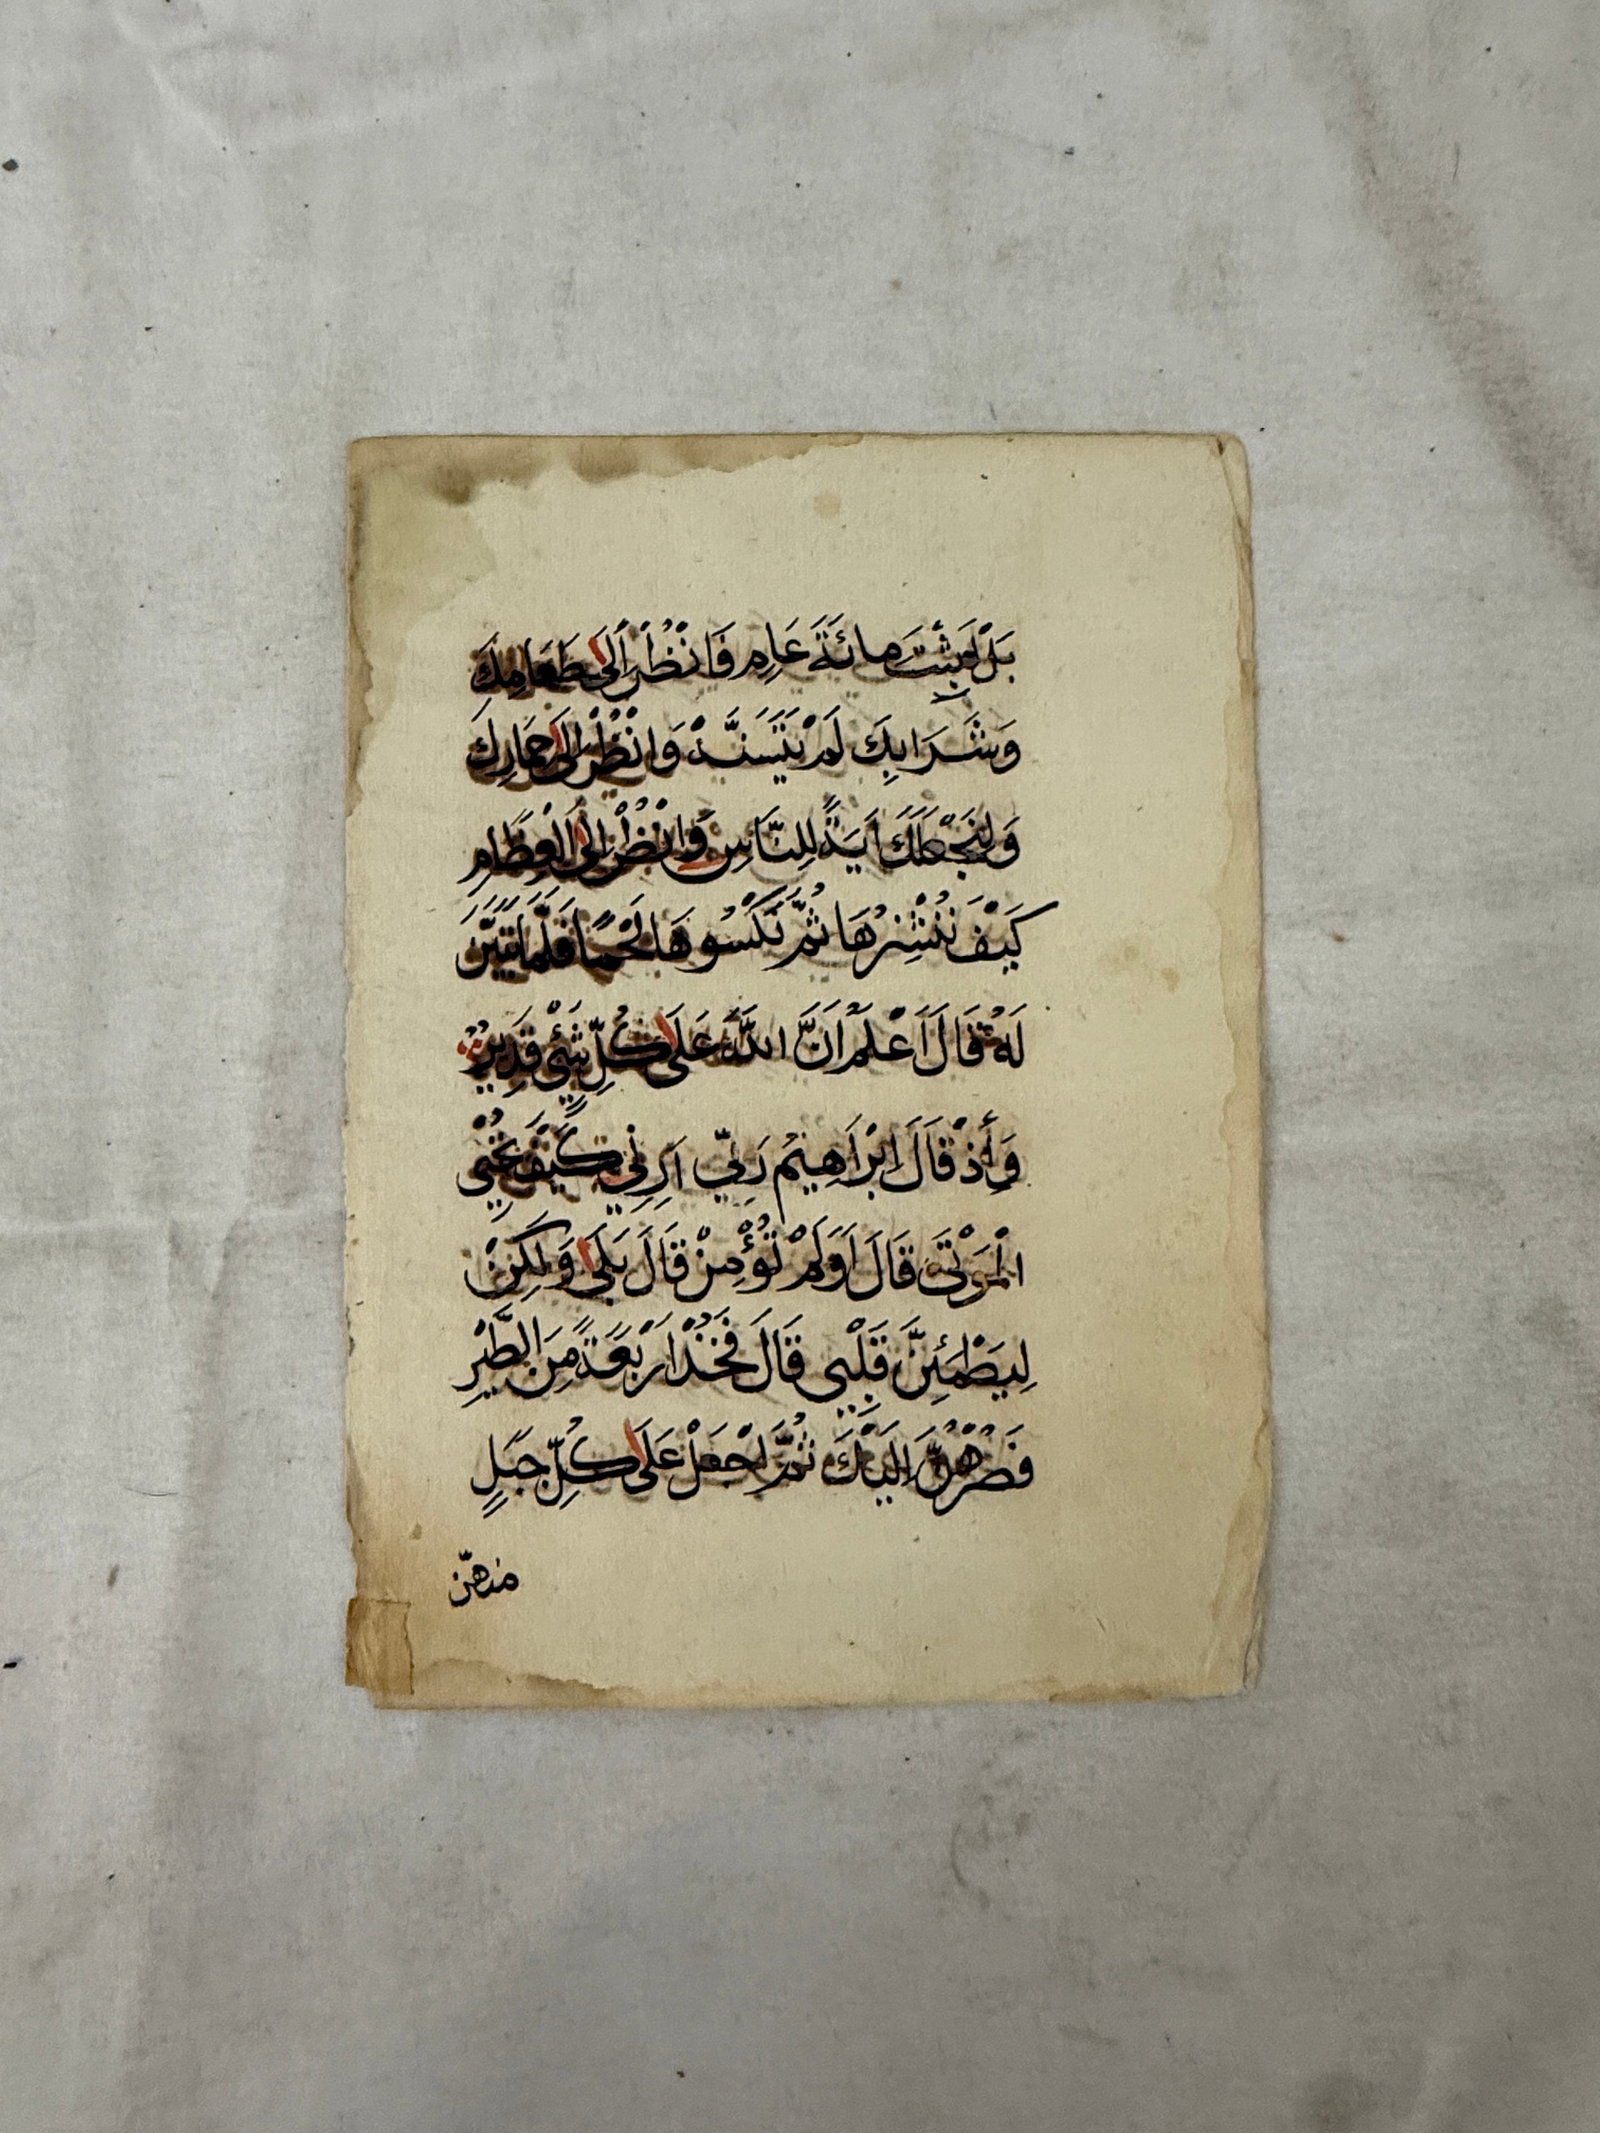 بَلْ لَبِثْتَ مِائَةَ عَامٍ فَانْظُرْ اِلَى طَعَامِكَ
وَشَرَابِكَ لَمْ يَتَسَنَّهْ وَانْظُرْ اِلَى حِمَارِكَ
وَلِنَجْعَلَكَ اَيَةً لِلنَّاسِ وَانْظُرْ اِلَى الْعِظَامِ
كَيْفَ نُنْشِزُهَا ثُمَّ نَكْسُوهَا لَحْمًا فَلَمَّا تَبَيَّنَ
لَهُ قَالَ اَعْلَمُ اَنَّ اللَّهَ عَلَى كُلِّ شَيْءٍ قَدِيرٌ
وَاِذْ قَالَ اِبْرَاهِيمُ رَبِّ اَرِنِي كَيْفَ تُحْيِي
الْمَوْتَى قَالَ اَوَلَمْ تُؤْمِنْ قَالَ بَلَى وَلَكِنْ
لِيَطْمَئِنَّ قَلْبِي قَالَ فَخُذْ اَرْبَعَةً مِنَ الطَّيْرِ
فَصُرْهُنَّ اِلَيْكَ ثُمَّ اجْعَلْ عَلَى كُلِّ جَبَلٍ
منهنّ